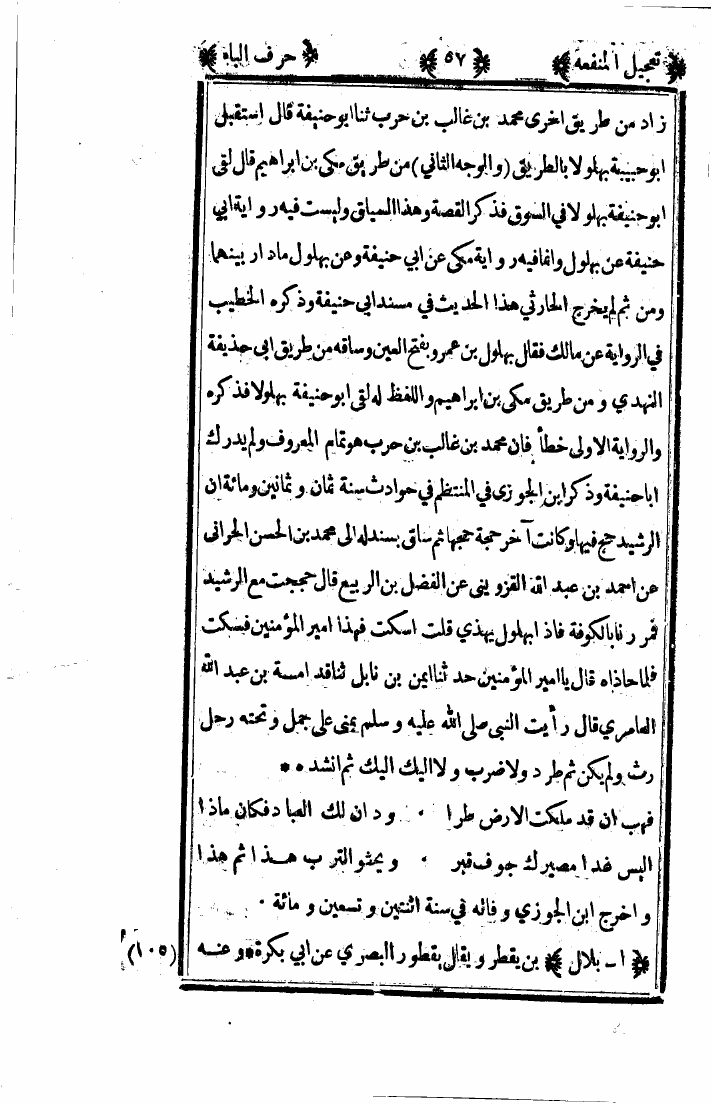 ﴿ تعجيل المنفعة ﴾ ﴿ ٥٧ ﴾ ﴿ حرف الباء ﴾
زاد من طريق اخرى محمد بن غالب بن حرب ثنا ابو حنيفة قال استقبل
ابو حبيبة بهلولا بالطريق (والوجه الثاني) من طريق مكي بن ابراهيم قال لقى
ابو حنيفة بهلولا في السوق فذكر القصة وهذا السياق وليست فيه رواية ابي
حنيفة عن بهلول وانما فيه رواية مكي عن ابي حنيفة وعن بهلول ما دار بينهما
ومن ثم لم يخرج الحارثي هذا الحديث في مسند ابي حنيفة وذكره الخطيب
في الرواية عن مالك فقال بهلول بن عمرو بفتح العين وساقه من طريق ابى حذيفة
النهدي و من طريق مكي بن ابراهيم واللفظ له لقى ابو حنيفة بهلولا فذكره
والرواية الاولى خطأ فان محمد بن غالب بن حرب هو تمام المعروف ولم يدرك
ابا حنيفة وذكر ابن الجوزى في المنتظم في حوادث سنة ثمان و ثمانين ومائة ان
الرشيد حج فيها وكانت آخر حجة حجها ثم ساق بسند له الى محمد بن الحسن الحرانى
عن احمد بن عبد الله القزوينى عن الفضل بن الربيع قال حججت مع الرشيد
فمررنا بالكوفة فاذا بهلول يهذي قلت اسكت فهذا امير المؤمنين فسكت
فلما حاذاه قال يا امير المؤمنين حدثنا ايمن بن نابل ثنا قدامة بن عبد الله
العامري قال رأيت النبي صلى الله عليه و سلم بمنى على جمل و تحته رحل
رث ولم يكن ثم طرد ولا ضرب و لا اليك اليك ثم انشد **
فهب ان قد ملكت الارض طرا · ودان لك العباد فكان ماذا
اليس غدا مصيرك جوف قبر · ويحثو الترب هذا ثم هذا
و اخرج ابن الجوزي وفاته في سنة اثنتين و تسعين و مائة ·
﴿ ١ – بلال ﴾ بن يقطر و يقال بقطور البصري عن ابي بكرة * و عنه (١٠٥)